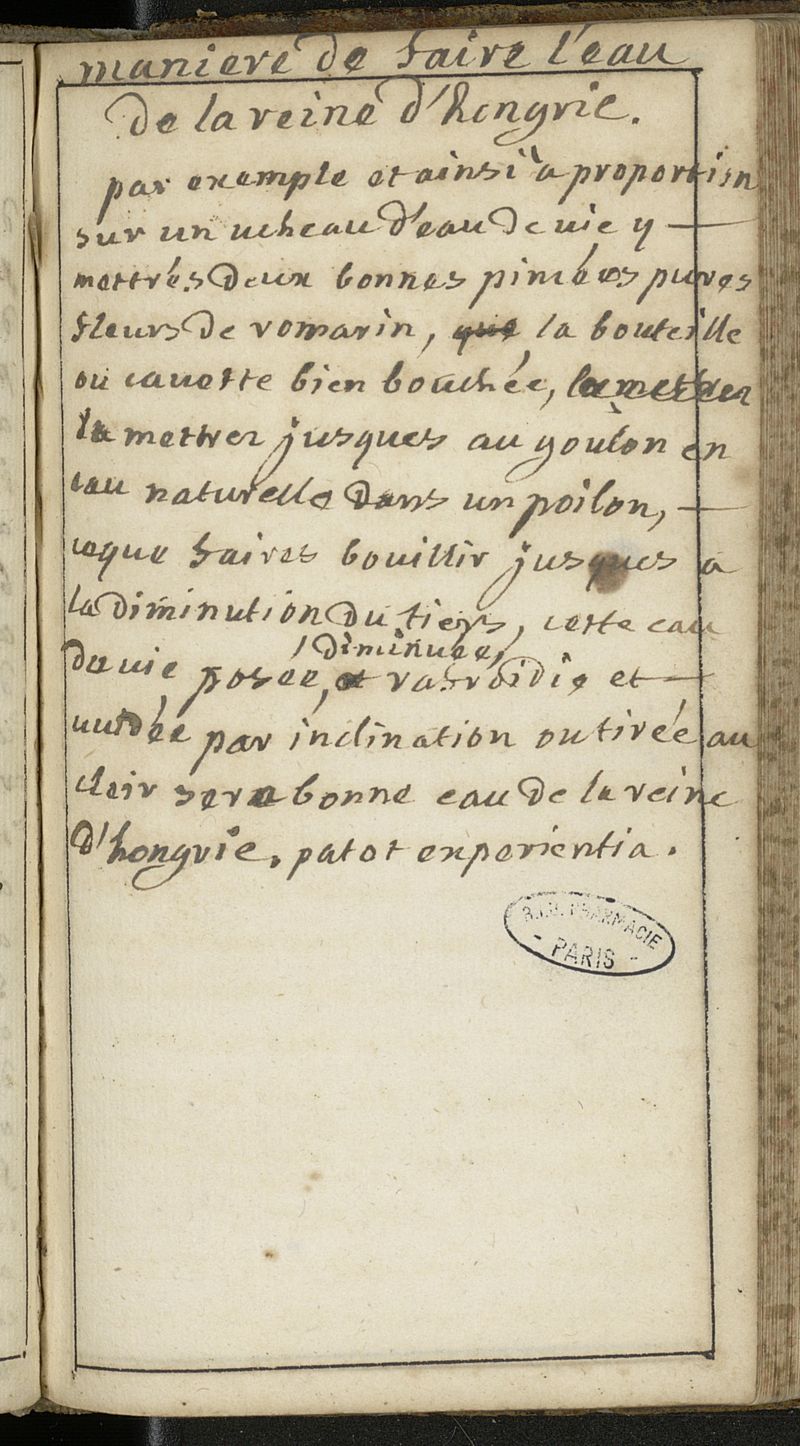 maniere de faire l'eau
de la reine d'hongrie.
par exemple et ainsi a proportion
sur un ucheau d'eau de vie y —
mettrés deux bonnes pincées pures
fleurs de romarin, que, la bouteille
ou cavotte bien bouchée,
la mettrez jusques au goulon en
eau naturelle dans un poilon, —
ce que faires bouillir jusques a
la diminution du tiers, cette eau
diminuée,
de vie posée, et rafroidie et —
vuidée par inclination ou tirée au
clair sera bonne eau de la reine
d'hongrie. patet experientia.
B.I.U. PHARMACIE
- PARIS -